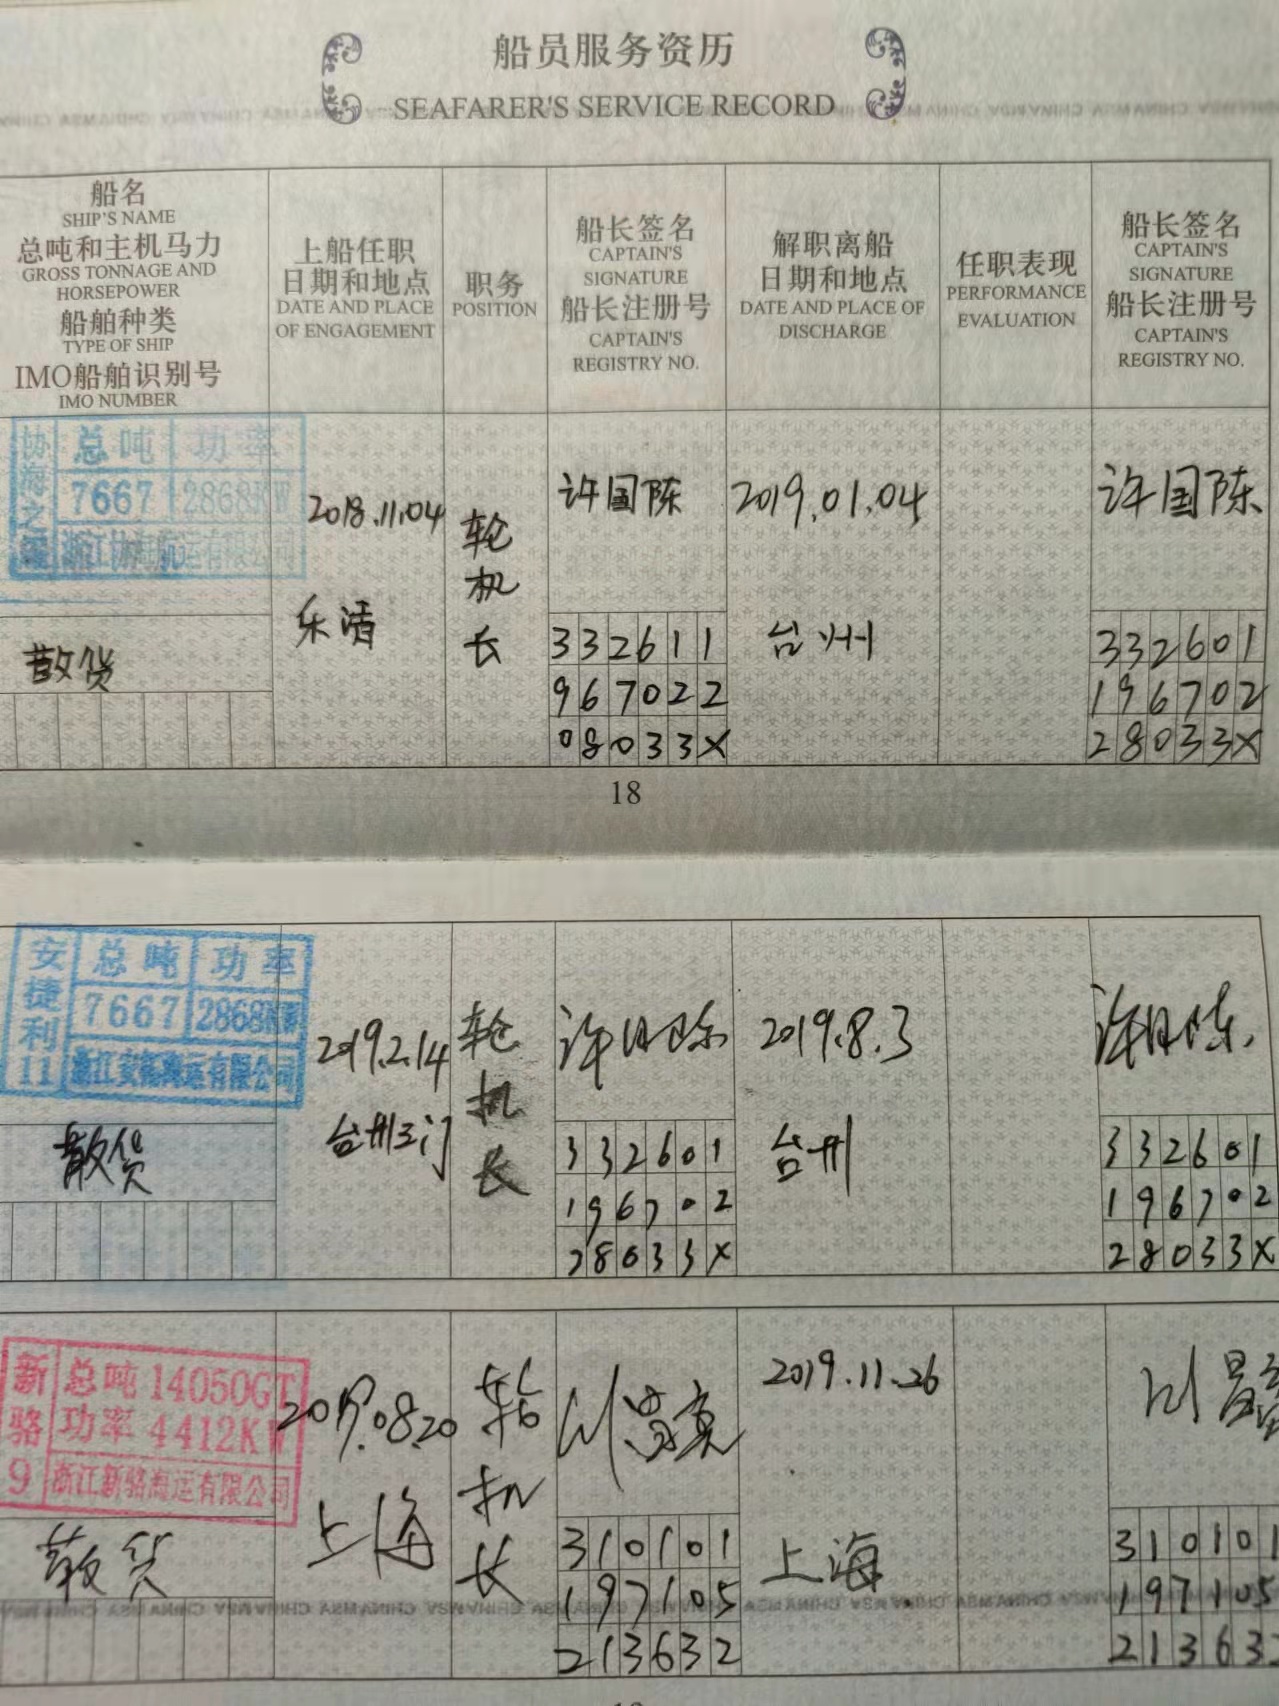 船员服务资历
SEAFARER'S SERVICE RECORD
船名
SHIP'S NAME
总吨和主机马力
GROSS TONNAGE AND
HORSEPOWER
船舶种类
TYPE OF SHIP
IMO船舶识别号
IMO NUMBER
上船任职
日期和地点
DATE AND PLACE
OF ENGAGEMENT
职务
POSITION
船长签名
CAPTAIN'S
SIGNATURE
船长注册号
CAPTAIN'S
REGISTRY NO.
解职离船
日期和地点
DATE AND PLACE OF
DISCHARGE
任职表现
PERFORMANCE
EVALUATION
船长签名
CAPTAIN'S
SIGNATURE
船长注册号
CAPTAIN'S
REGISTRY NO.
协海之
总吨 功率
7667 2868KW
浙江协海航运有限公司
散货
2018.11.04
乐清
轮机长
许国陈
332611
967022
08033X
2019.01.04
台州
许国陈
332601
196702
28033X
18
安捷利11
总吨 功率
7667 2868KW
浙江安 海运有限公司
散货
2019.2.14
台州三门
轮机长
332601
196702
28033X
2019.8.3
台州
332601
196702
28033X
新骆9
总吨 14050GT
功率 4412KW
浙江新骆海运有限公司
散货
2019.08.20
上海
轮机长
310101
197105
213632
2019.11.26
上海
310101
197105
213632